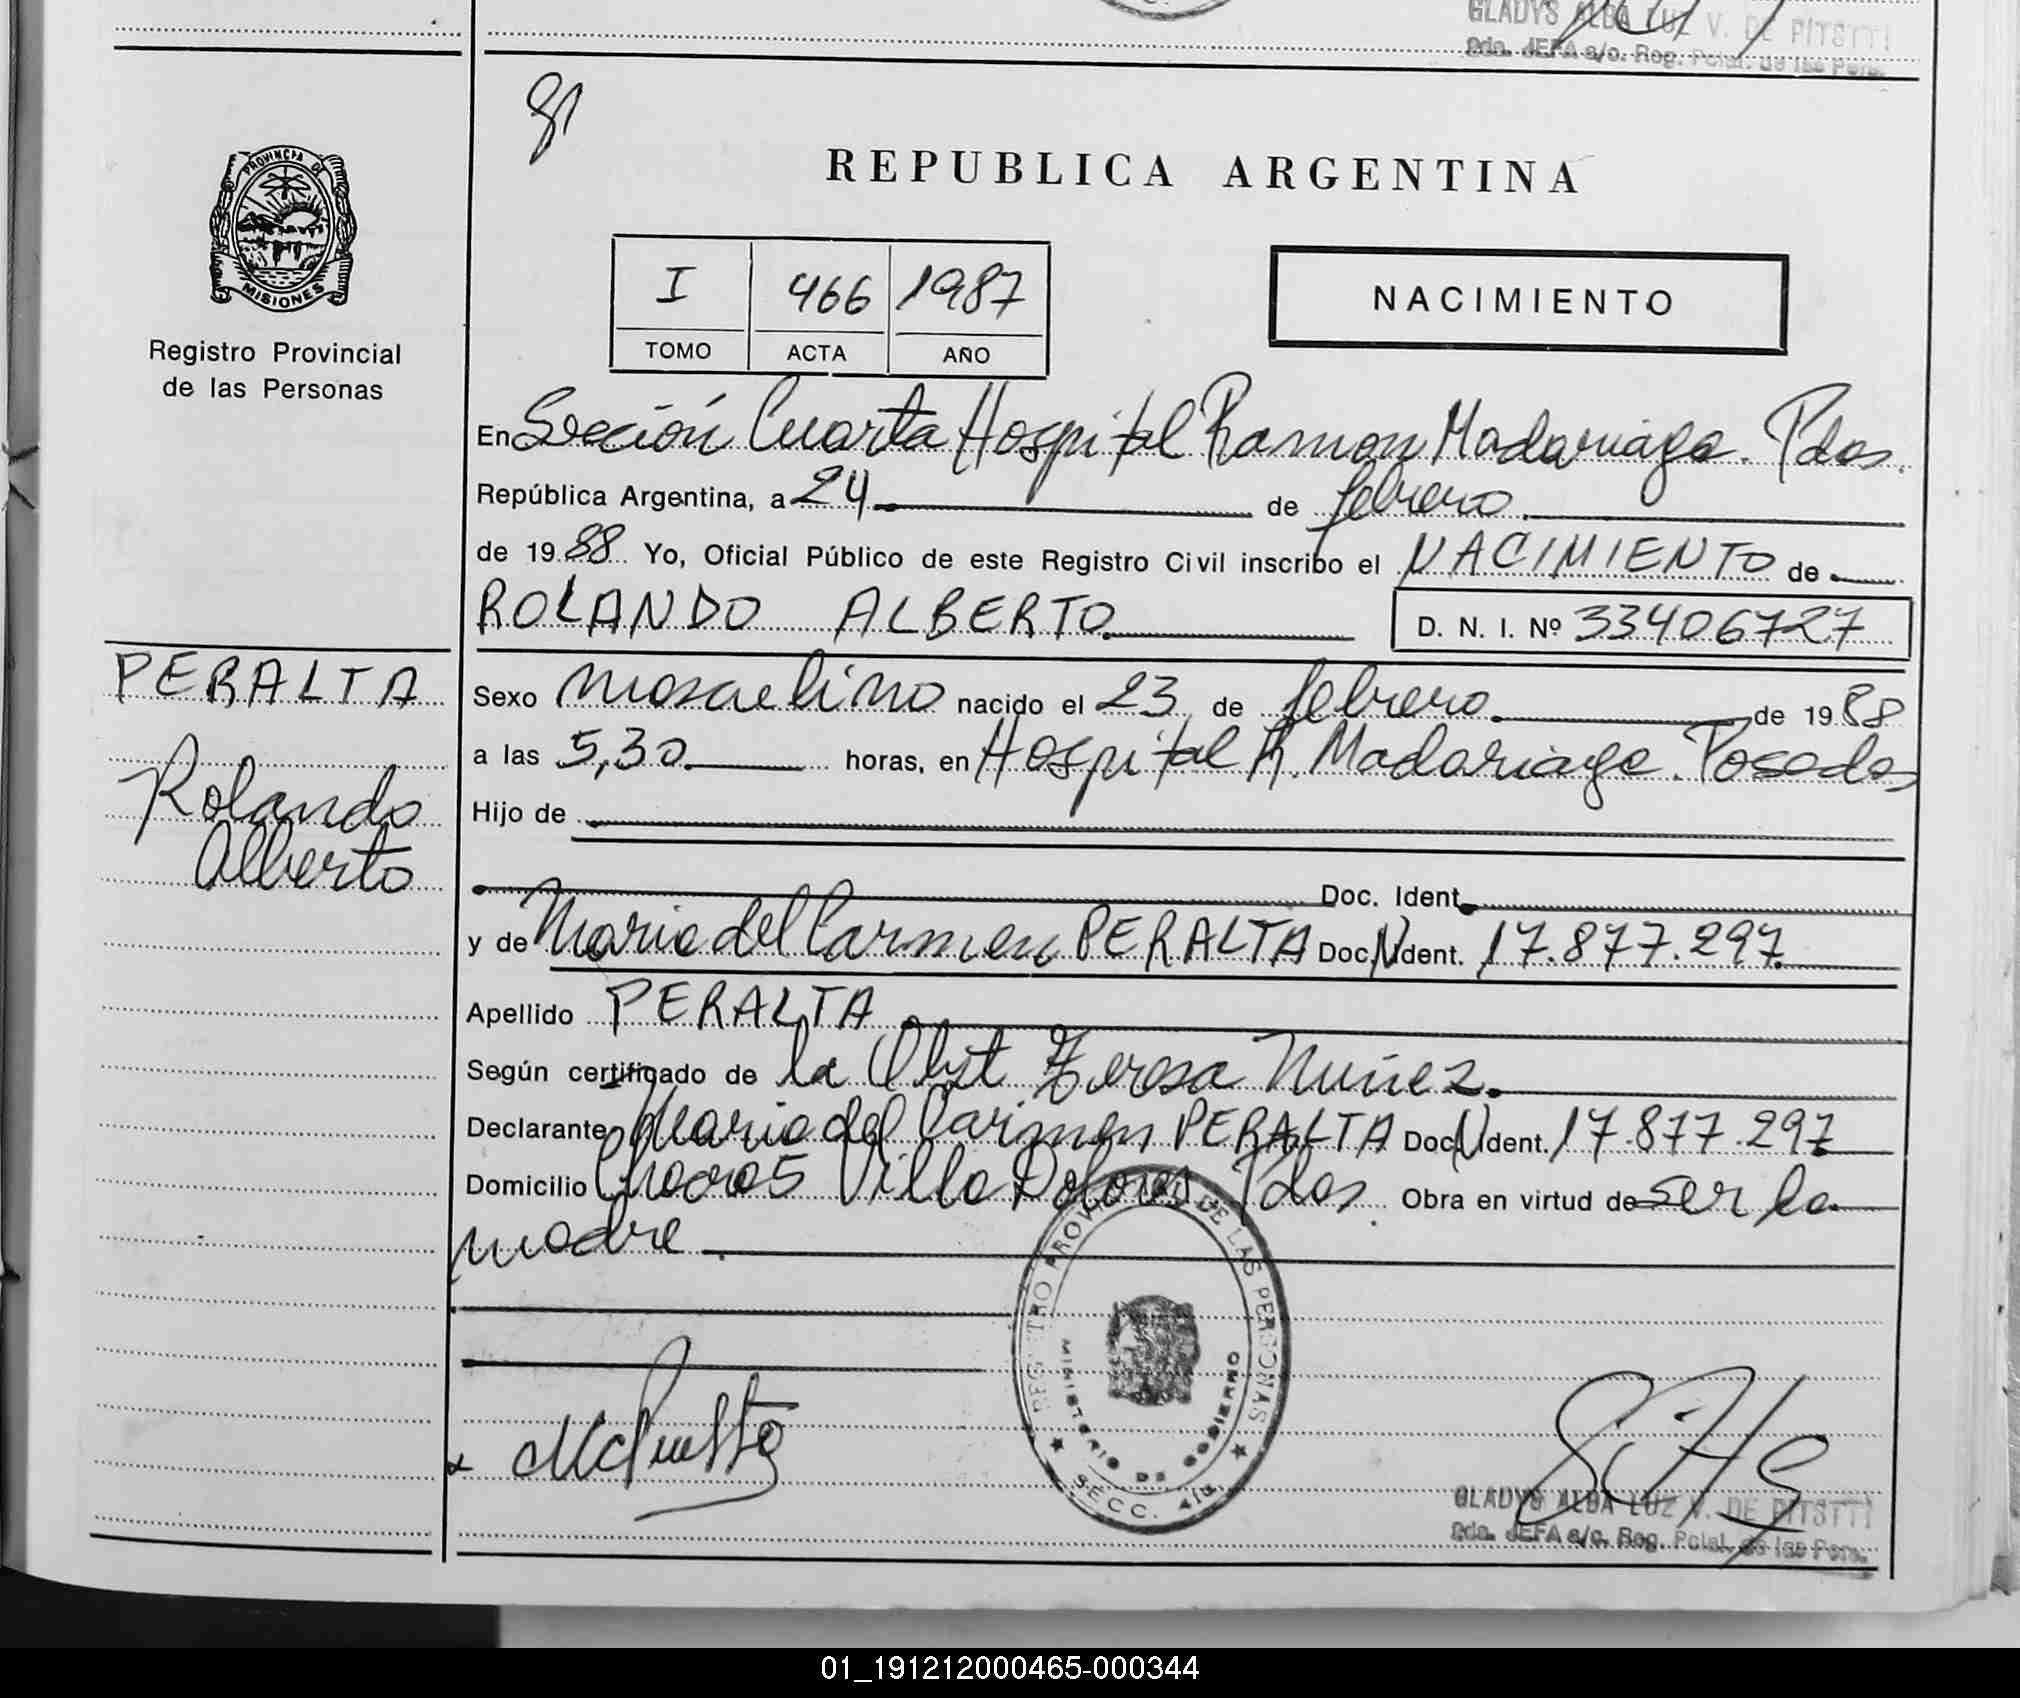 GLADYS ALBA LUZ V. DE PITSTTI
Pda. JEFA a/c. Reg. Pcial. de las Pers.
PROVINCIA DE
MISIONES
Registro Provincial
de las Personas
PERALTA
Rolando
Alberto
REPUBLICA ARGENTINA
I 466 1987
TOMO ACTA AÑO
NACIMIENTO
En Sección Cuarta Hospital Ramon Madariaga. Pdas.
República Argentina, a 24 de febrero
de 1988 Yo, Oficial Público de este Registro Civil inscribo el NACIMIENTO de
ROLANDO ALBERTO D. N. I. Nº 33406727
Sexo masculino nacido el 23 de febrero de 1988
a las 5,30 horas, en Hospital R. Madariaga. Posadas
Hijo de
Doc. Ident.
y de Maria del Carmen PERALTA Doc. Ident. 17.877.297
Apellido PERALTA
Según certificado de la Obst Teresa Nuñez.
Declarante Maria del Carmen PERALTA Doc. Ident. 17.877.297
Domicilio Villa Dolores Pdas. Obra en virtud de ser la
madre
REGISTRO PROVINCIAL DE LAS PERSONAS
MINISTERIO DE GOBIERNO
SECC. 4ta
GLADYS ALBA LUZ V. DE PITSTTI
Pda. JEFA a/c. Reg. Pcial. de las Pers.
01_191212000465-000344